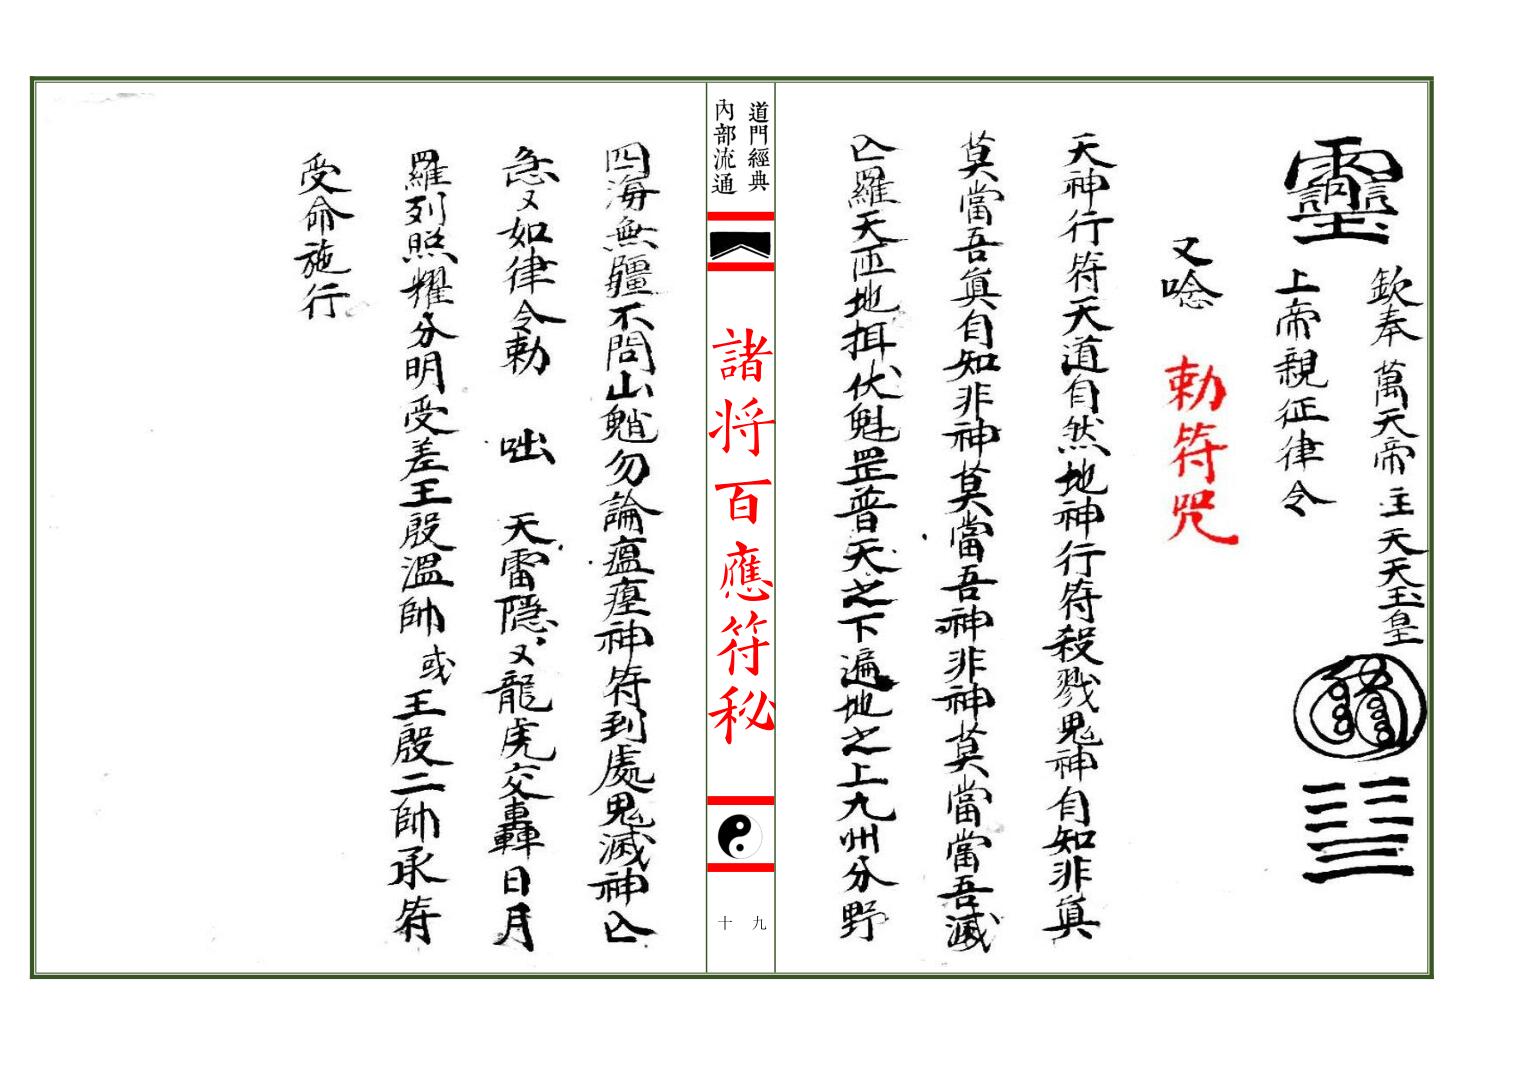 欽奉 萬天帝主 天天玉皇
上帝親征律令
又唸 勅符咒
天神行符天道自然地神行符殺戮鬼神自知非真
莫當吾真自知非神莫當吾神非神莫當當吾滅
亾羅天匝地拑伏魁罡普天之下遍地之上九州分野
道門經典
內部流通
諸将百應符秘
九
十
四海無疆不問山魈勿論瘟㾏神符到處鬼滅神亾
急又如律令勅 咄 天雷隱又龍虎交轟日月
羅列照耀分明受差王殷溫帥 或王殷二帥承符
受命施行